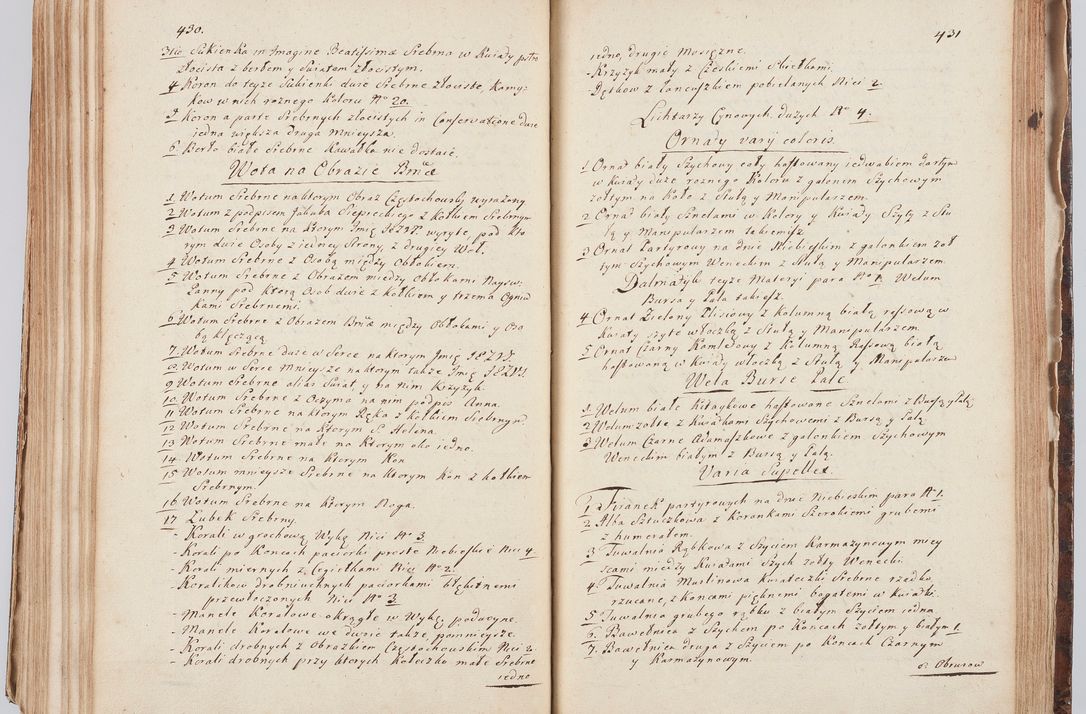 430.
3tio Sukienka in Imagine Beatissimæ Srebrna w Kwiaty pstro
złocista z berłem y Swiatem złocistym.
4 Koron do teyże Sukienki duże Srebrne złociste, Kamy-
kow w nich rożnego Koloru No 20.
5 Koron a parte Srebrnych złocistych in Conservatione duże
iedna większa druga mnieysza.
6. Berło białe Srebrne Kawałka nie dostaie.
Wota na Obrazie BMæ
1 Wotum Srebrne na ktorym Obraz Częstochowski wyrażony
2 Wotum z podpisem Jakuba Siepieckiego z kołkiem Srebrnym
3 Wotum Srebrne na Ktorym Imię IEZUS wyryte, pod kto-
rym dwie Osoby z iedney Strony, z drugiey Woł.
4 Wotum Srebrne z Osobą między Obłokiem.
5 Wotum Srebrne z Obrazem między Obłokami Nayśw:
Panny pod ktorą Osob dwie z kołkiem y trzema Ogniw-
kami Srebrnemi.
6 Wotum Srebrne z Obrazem BMæ między Obłokami y Oso-
bą klęczącą.
7 Wotum Srebrne duże w Serce na ktorym Imię IEZUS.
8 Wotum w Serce Mnieysze na ktorym także Imię IEZUS.
9 Wotum Srebrne alias Swiat, y na nim Krzyżyk.
10 Wotum Srebrne z Oczyma na nim podpis Anna.
11 Wotum Srebrne na ktorym Ręka z kołkiem Srebrnym.
12 Wotum Srebrne na ktorym S. Helena.
13 Wotum Srebrne małe na Ktorym oko iedno.
14 Wotum Srebrne na Ktorym Kon
15 Wotum mnieysze Srebrne na Ktorym Kon z kołkiem
Srebrnym.
16 Wotum Srebrne na Ktorym Noga.
17 Ząbek Srebrny.
- Korali w grochową Wykę Nici No 3
- Korali po Koncach paciorki proste Niebieskie Nici 4
- Korali miernych z Cząstkami Nici No 2.
- Koralikow drobniuchnych paciorkami błękitnemi
przewłoczonych Nici No 3
- Manele Koralowe okrągłe w Wykę podwoyne.
- Manele Koralowe we dwoie także, pomnieysze.
- Korali drobnych z Obrazkiem Częstochowskim Nici 2.
- Korali drobnych przy ktorych Kołeczko małe Srebrne
iedno
431
iedno, drugie Mosiężne.
- Krzyżyk mały z Czeskiemi Skiełkami,
- Dętkow z Łancuszkiem pobielanych Nici 2.
Lichtarzy Cynowych dużych No 4.
Ornaty varij coloris.
1 Ornat biały Szychowy cały haftowany iedwabiem
w kwiaty duże rożnego Koloru z galonem Szychowym
żołtym na koło z Stułą y Manipularzem.
2 Ornat biały Sznelami w Kolory y Kwiaty Szyty z Stu-
łą y Manipularzem takiemiż
3 Ornat Partyrowy na dnie Niebieskim z galonkiem żoł-
tym Szychowym Weneckim z Stułą y Manipularzem.
Dalmatyk teyże Materyi para No 1. Welum
Bursa y Pala takież.
4 Ornat Zielony Plisiowy z kolumną białą rossową w
Kwiaty szyte włoczką z Stułą y Manipularzem.
5 Ornat Czarny Kamletowy z Kolumną Rassową białą
haftowaną w Kwiaty włoczką z Stułą y Manipularzem
Wela Bursæ Palæ
1. Welum białe Kitaykowe haftowane Sznelami z Bursą y Palą
2 Welum żołte z Kwiatkami Szychowemi z Bursą y Palą.
3 Welum Czarne Adamaszkowe z galonkiem Szychowym
Weneckim białym z Bursą y Palą.
Varia Supellex.
1 Firanek partyrowych na dnie Niebieskim para No 1.
2 Alba Sztuczkowa z Koronkami Szerokiemi grubemi
z humerałem.
3 Tuwalnia Rąbkowa z Szyciem Karmazynowym miey-
scami między Kwiatami Szych żołty Wenecki.
4. Tuwalnia Muslinowa Kwiateczki Srebrne rzadko
rzucane, z koncami pięknemi bogatemi w kwiatki.
5 Tuwalnia grubego rąbku z białym Szyciem iedna
6. Bawełnica z Szychem po Koncach żołtym y białym 1.
7. Bawełnica druga z Szyciem po Koncach Czarnym
y Karmazynowym.
8. Obrusow